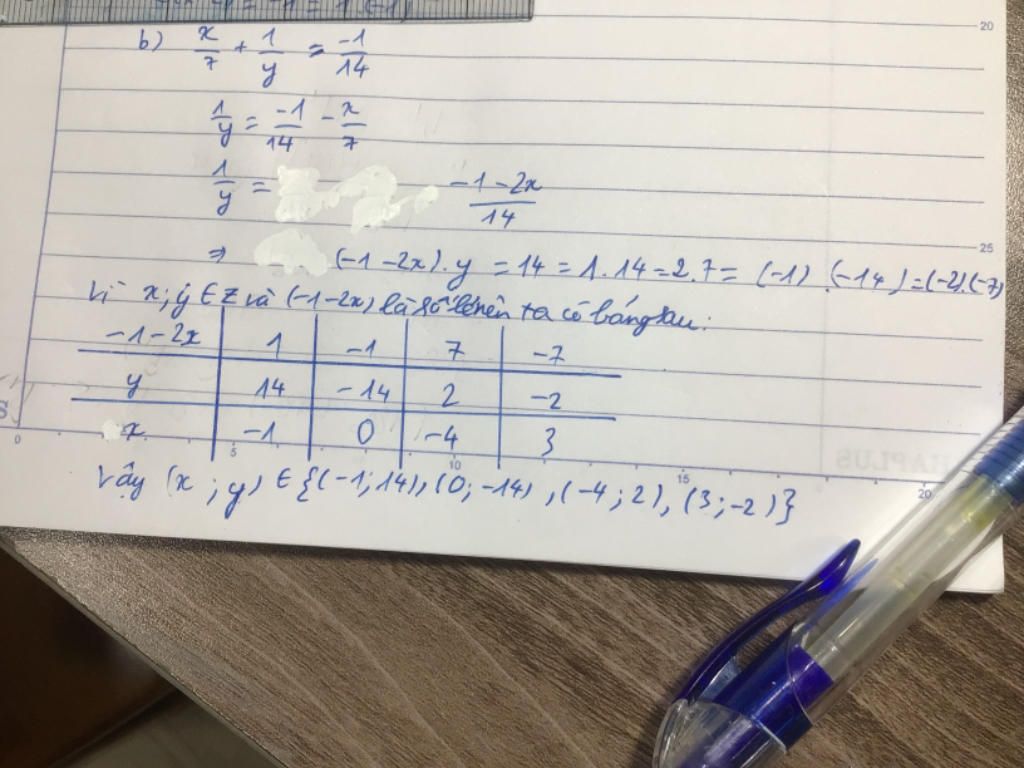 b) x/7 + 1/y = -1/14
1/y = -1/14 - x/7
1/y = -1-2x/14
⇒ (-1-2x).y = 14 = 1.14 = 2.7 = (-1).(-14) = (-2).(-7)
Vì x;y ∈ Z và (-1-2x) là số lẻ nên ta có bảng sau:
-1-2x 1 -1 7 -7
y 14 -14 2 -2
x -1 0 -4 3
Vậy (x;y) ∈ {(-1;14), (0;-14), (-4;2), (3;-2)}
20
25
0 5 10 15 20